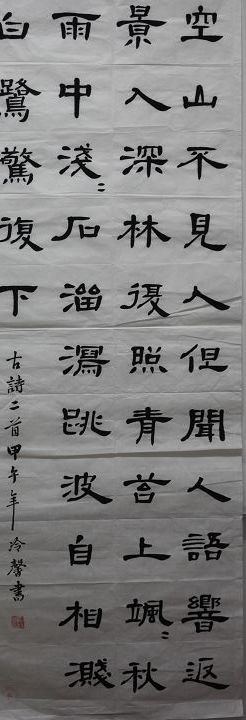 空山不見人但聞人語響返
景入深林復照青苔上颯〻秋
雨中淺〻石溜瀉跳波自相濺
白鷺驚復下
古詩二首甲午年冷馨書